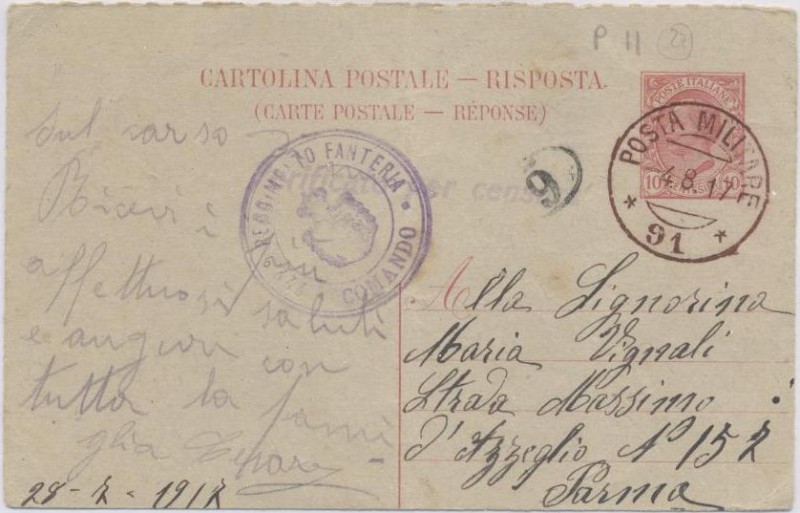 P 11 22
CARTOLINA POSTALE — RISPOSTA.
(CARTE POSTALE — RÉPONSE)
POSTE ITALIANE
10
10
POSTA MILITARE
4.8.17
* 91 *
9
REGGIMENTO FANTERIA
COMANDO
Verificato per censura
Sul carso
Ricevi i
più
affettuosi saluti
e auguri con
tutta la fami
glia Cesare
28-7-1917
Alla Signorina
Maria Vignali
Strada Massimo
d'Azzeglio N° 152
Parma